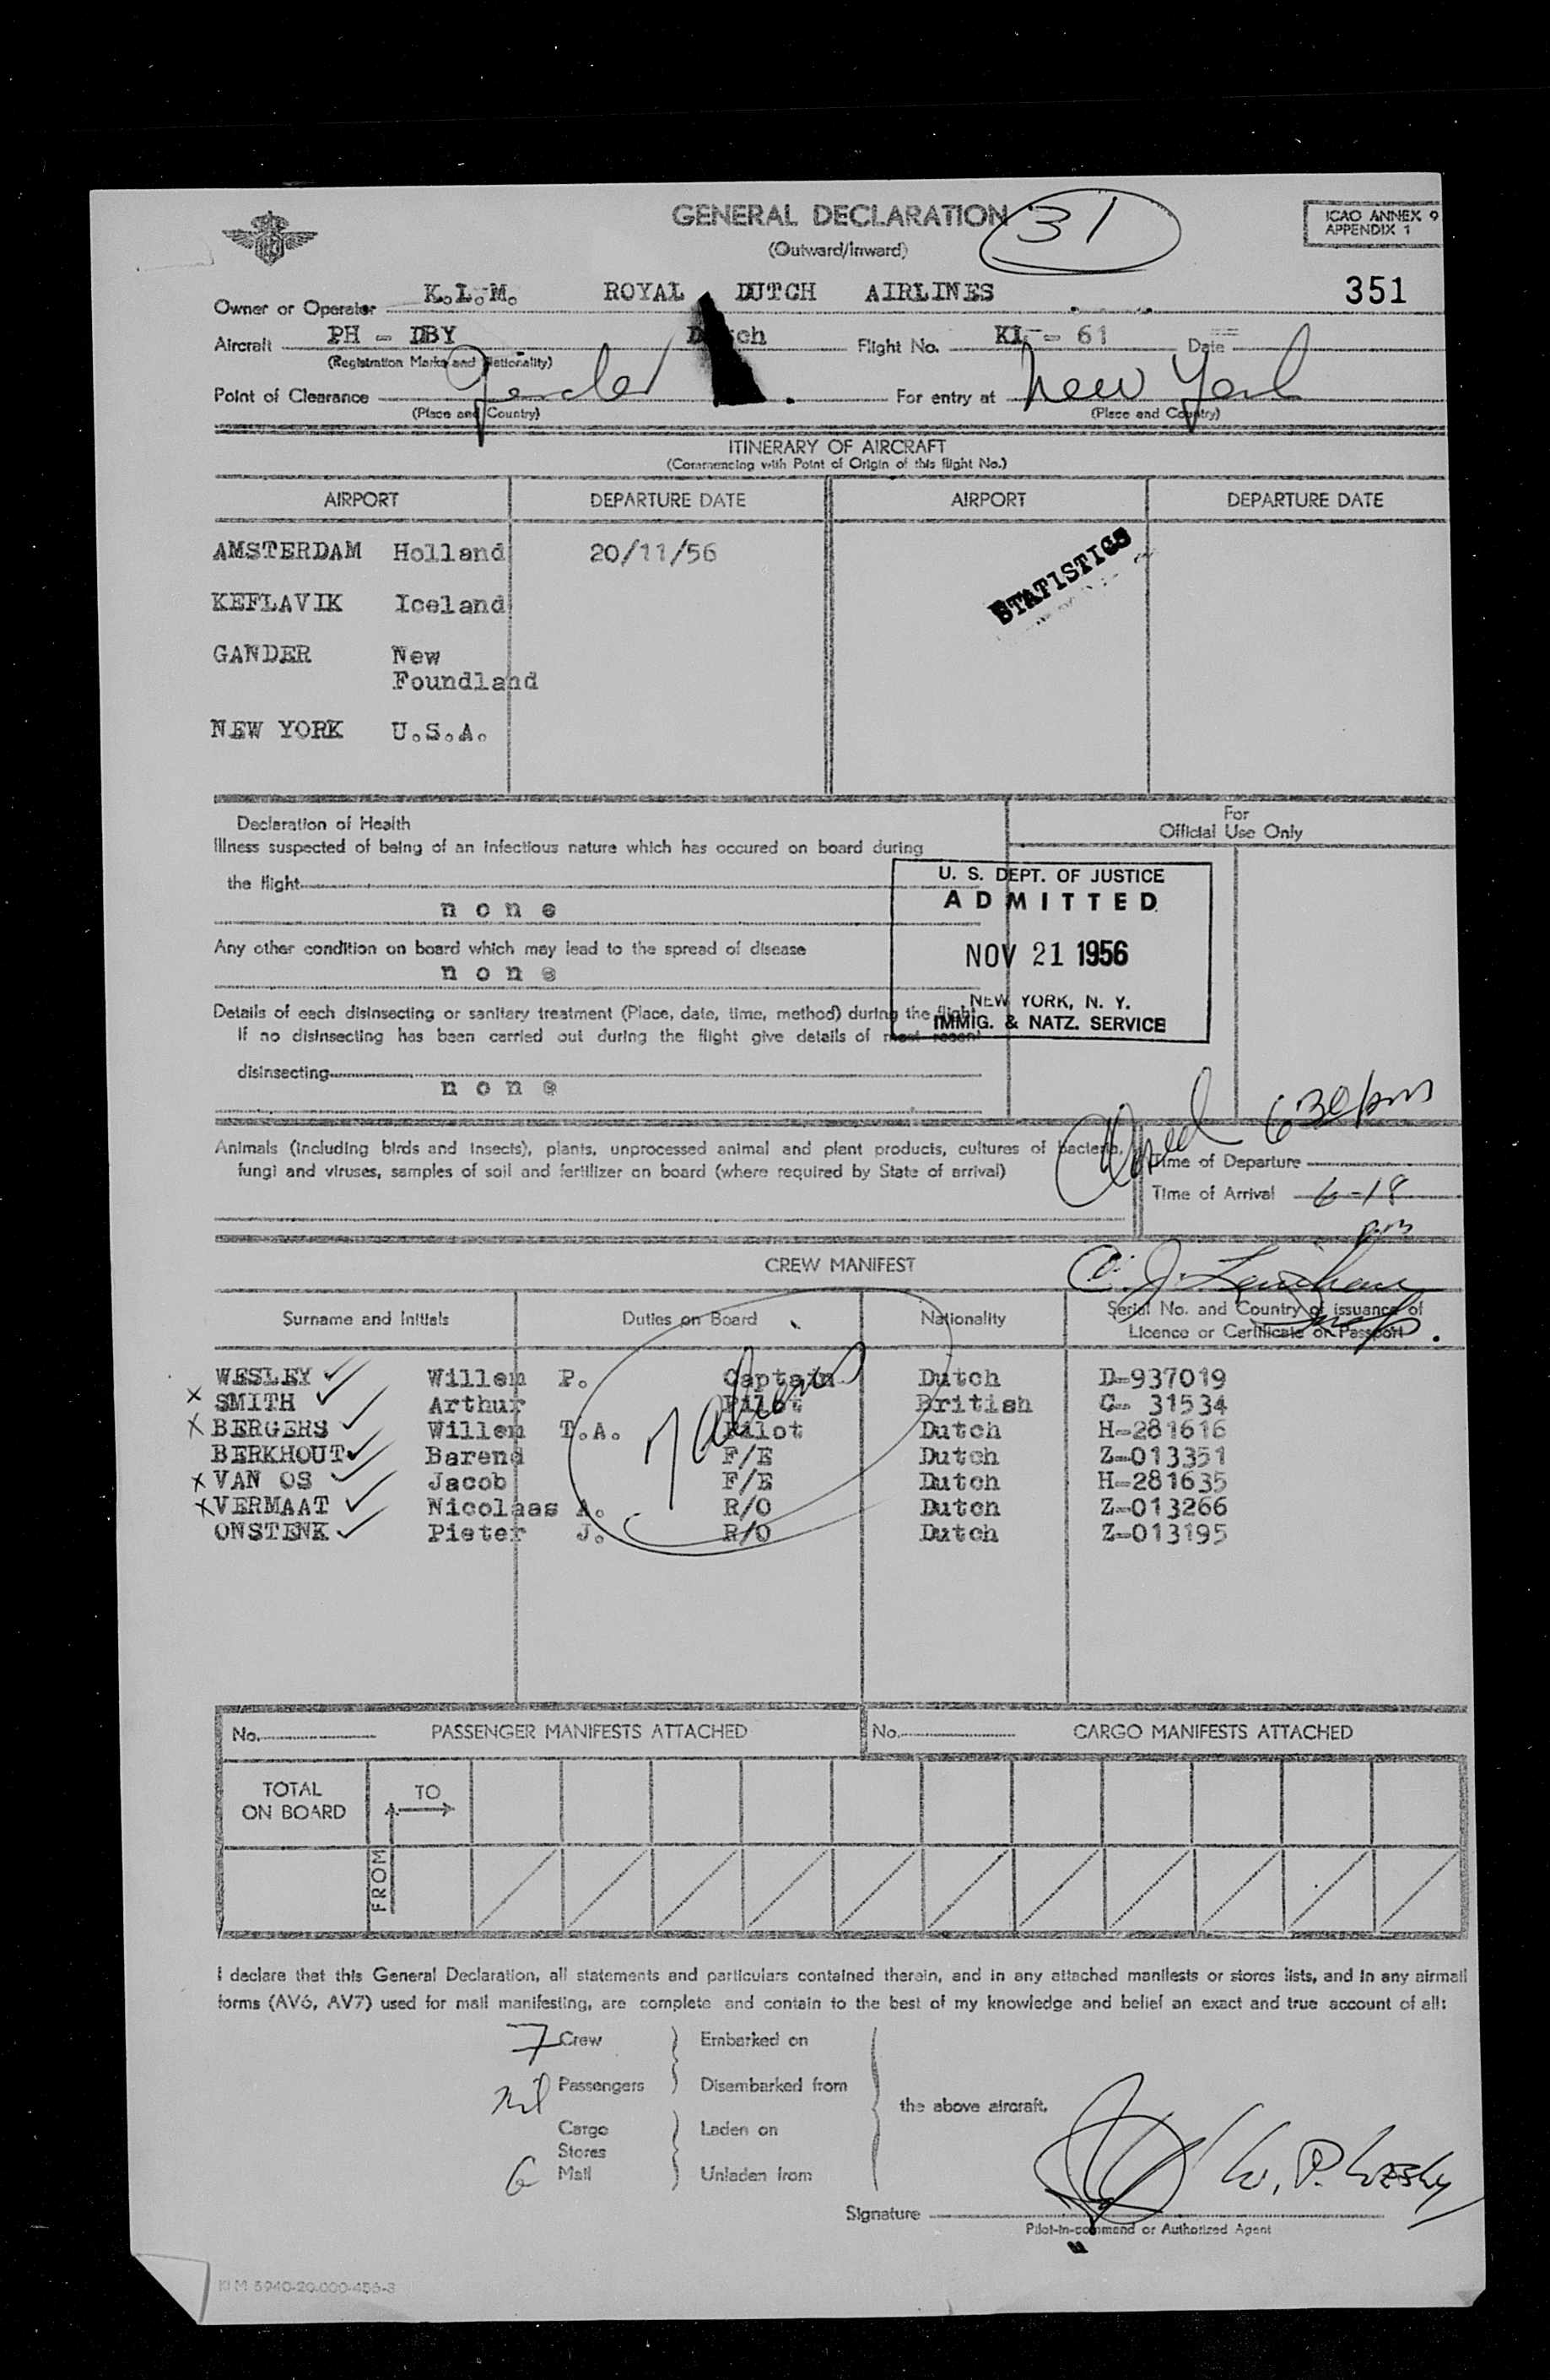 GENERAL DECLARATION
31
(Outward/Inward)
ICAO ANNEX 9
APPENDIX 1
351
Owner or Operator K.L.M. ROYAL DUTCH AIRLINES
Aircraft PH - DBY Flight No. KL - 61 Date
(Registration Marks and Nationality)
Point of Clearance Gander For entry at New York
(Place and Country) (Place and Country)
ITINERARY OF AIRCRAFT
(Commencing with Point of Origin of this flight No.)
AIRPORT DEPARTURE DATE AIRPORT DEPARTURE DATE
AMSTERDAM Holland 20/11/56
STATISTICS
KEFLAVIK Iceland
GANDER New
Foundland
NEW YORK U.S.A.
Declaration of Health
Illness suspected of being of an infectious nature which has occured on board during
the flight
none
Any other condition on board which may lead to the spread of disease
none
Details of each disinsecting or sanitary treatment (Place, date, time, method) during the flight
If no disinsecting has been carried out during the flight give details of most recent
disinsecting
none
For
Official Use Only
U. S. DEPT. OF JUSTICE
ADMITTED
NOV 21 1956
NEW YORK, N. Y.
IMMIG. & NATZ. SERVICE
630 pm
Animals (including birds and insects), plants, unprocessed animal and plant products, cultures of bacteria,
fungi and viruses, samples of soil and fertilizer on board (where required by State of arrival)
Time of Departure
Time of Arrival 6-18
pm
CREW MANIFEST
Surname and Initials Duties on Board Nationality Serial No. and Country of issuance of
Licence or Certificate or Passport
7 aliens
WESLEY Willem P. Captain Dutch D-937019
x SMITH Arthur Pilot British C- 31534
x BERGERS Willem T.A. Pilot Dutch H-281616
BERKHOUT Barend F/E Dutch Z-013351
x VAN OS Jacob F/E Dutch H-281635
x VERMAAT Nicolaas A. R/O Dutch Z-013266
ONSTENK Pieter J. R/O Dutch Z-013195
No. PASSENGER MANIFESTS ATTACHED No. CARGO MANIFESTS ATTACHED
TOTAL
ON BOARD
TO
FROM
I declare that this General Declaration, all statements and particulars contained therein, and in any attached manifests or stores lists, and in any airmail
forms (AV6, AV7) used for mail manifesting, are complete and contain to the best of my knowledge and belief an exact and true account of all:
7 Crew Embarked on
nil Passengers Disembarked from
the above aircraft.
Cargo Laden on
Stores
Mail Unladen from
W. P. Wesley
Signature
Pilot-in-command or Authorized Agent
KLM 5940-20.000-456-3